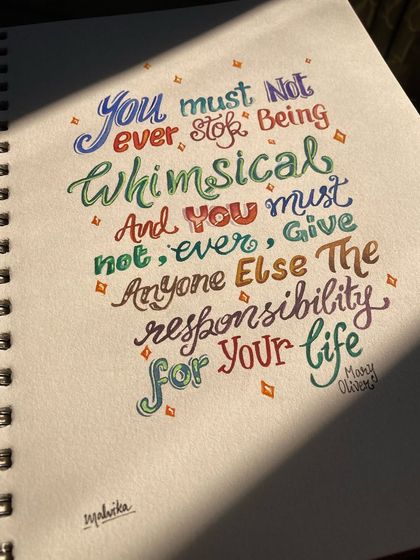 You must Not
ever Stop Being
Whimsical
And YOU must
not, ever, Give
Anyone Else The
responsibility
for your life
Mary
Oliver
Malvika